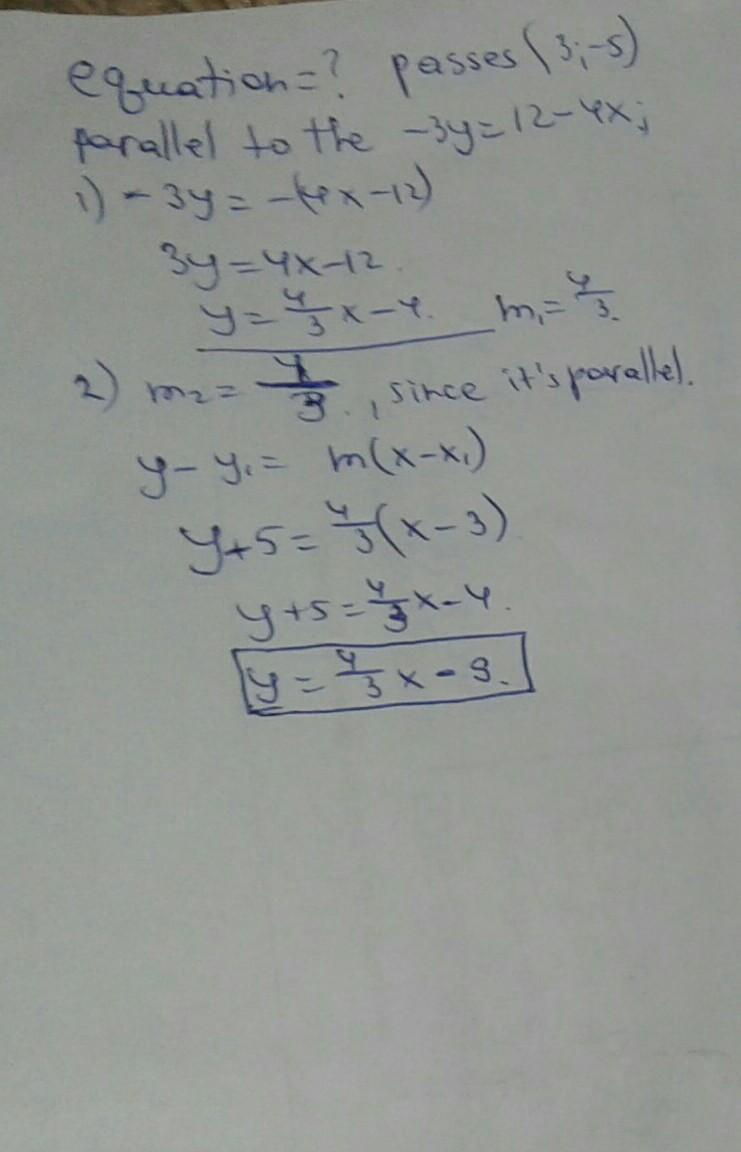 equation=? passes (3;-5)
parallel to the -3y=12-4x;
1) -3y=-(4x-12)
3y=4x-12.
y=4/3x-4. m₁=4/3.
2) m₂=4/3., since it's parallel.
y-y₁= m(x-x₁)
y+5=4/3(x-3)
y+5=4/3x-4.
y=4/3x-9.